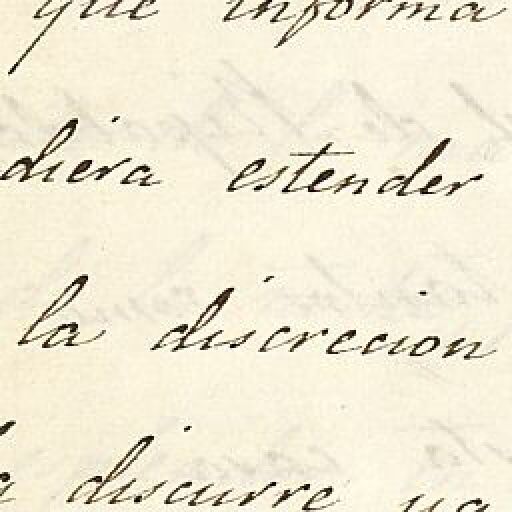 que informa
diera estender
la discrecion
discurre ya